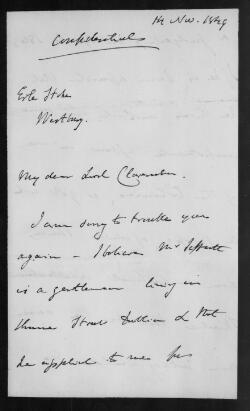 14 Nov. 1849
Confidential
Erle Stoke
Westbury.
My dear Lord Clarendon.
I am sorry to trouble you
again – I believe Mr
is a gentleman living in
Street Dublin & that
he applied to me for